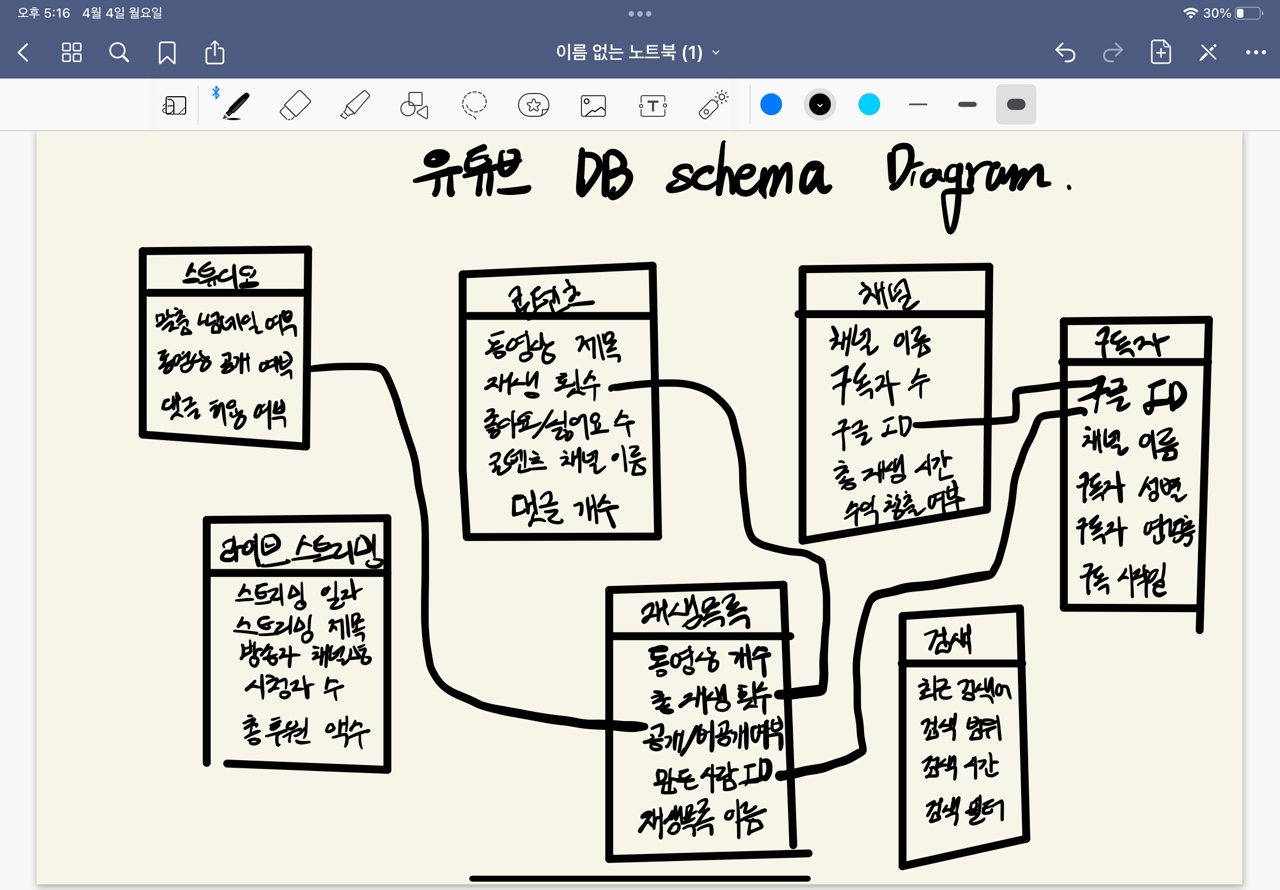 오후 5:16 4월 4일 월요일
30%
이름 없는 노트북 (1)
유튜브 DB schema Diagram.
스튜디오
맞춤 썸네일 여부
동영상 공개 여부
댓글 허용 여부
콘텐츠
동영상 제목
재생 횟수
좋아요/싫어요 수
콘텐츠 채널 이름
댓글 개수
채널
채널 이름
구독자 수
구글 ID
총 재생 시간
수익 창출 여부
구독자
구글 ID
채널 이름
구독자 성별
구독자 연령
구독 시작일
라이브 스트리밍
스트리밍 일자
스트리밍 제목
방송자 채널이름
시청자 수
총 후원 액수
재생목록
동영상 개수
총 재생 횟수
공개/비공개여부
만든 사람 ID
재생목록 이름
검색
최근 검색어
검색 범위
검색 시간
검색 필터